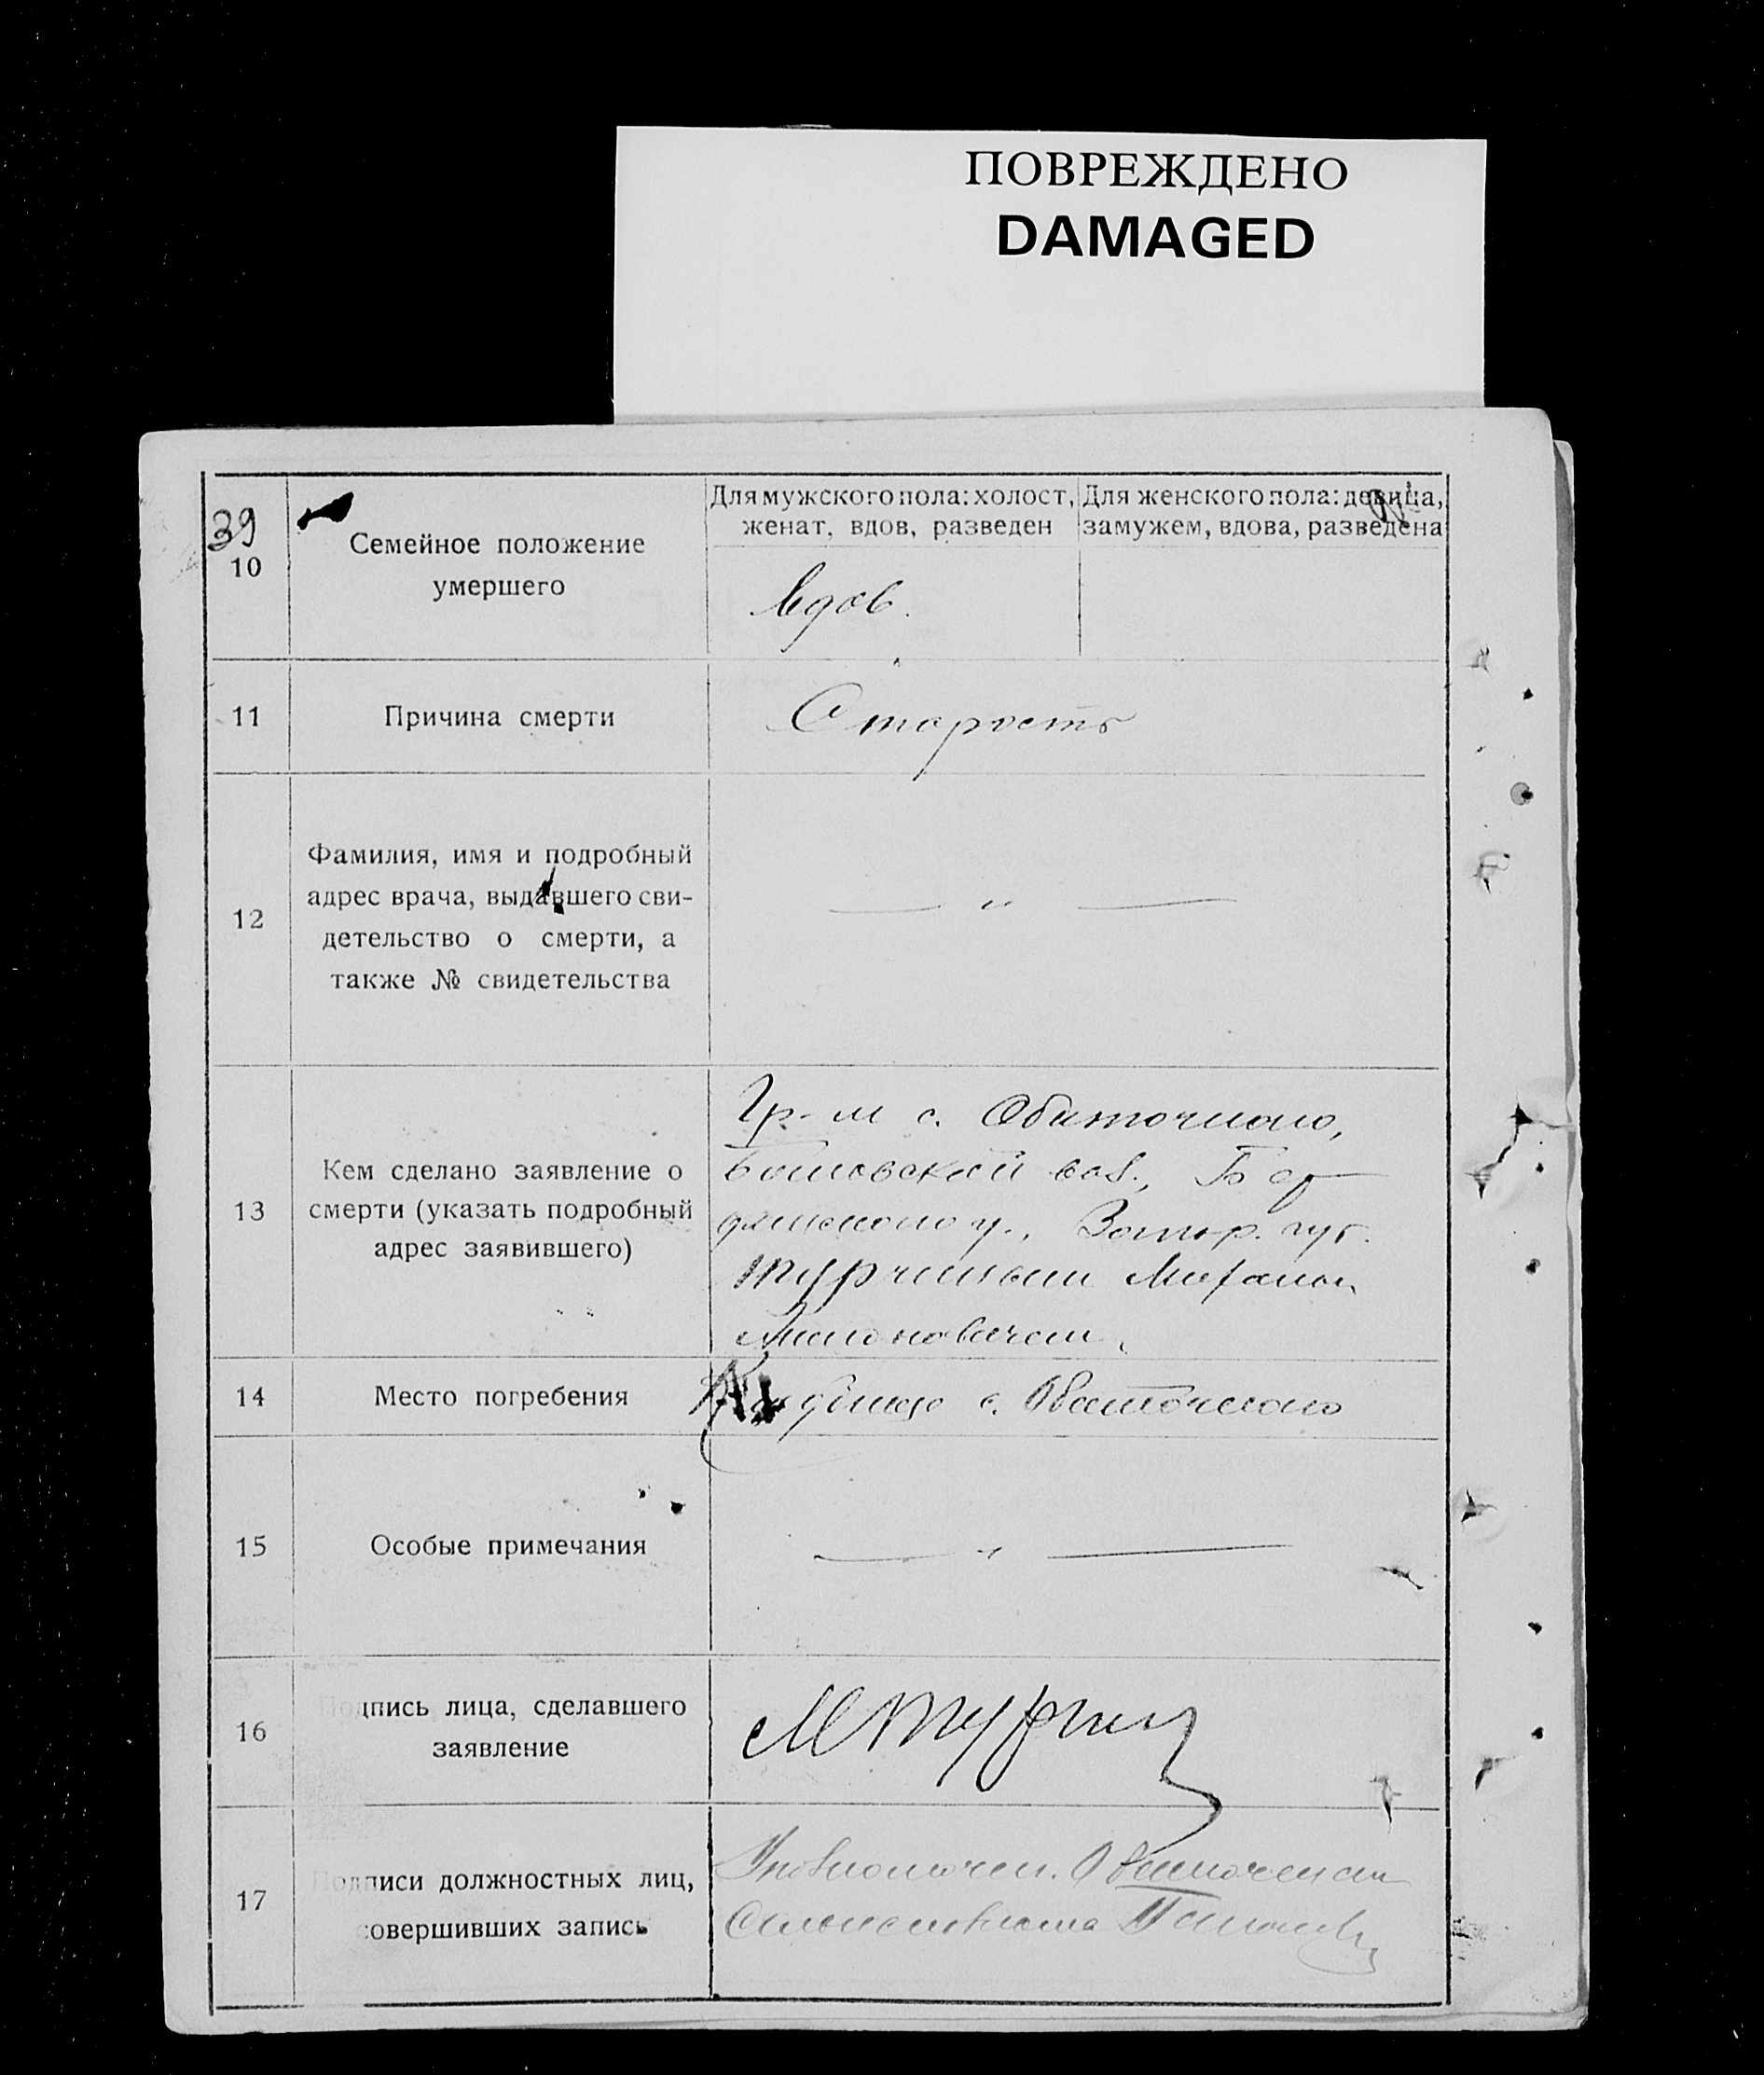 ПОВРЕЖДЕНО
DAMAGED
39
10
Семейное положение
умершего
Для мужского пола: холост,
женат, вдов, разведен
Для женского пола: девица,
замужем, вдова, разведена
вдов.
11
Причина смерти
Старость
12
Фамилия, имя и подробный
адрес врача, выдавшего сви-
детельство о смерти, а
также № свидетельства
— " —
13
Кем сделано заявление о
смерти (указать подробный
адрес заявившего)
Гр-м с. Обиточного,
вол., Бер
дянского у., Запор. губ.
Турчиным
14
Место погребения
Кладбище с. Обиточного
15
Особые примечания
— " —
16
Подпись лица, сделавшего
заявление
МТурчин
17
Подписи должностных лиц,
совершивших запись